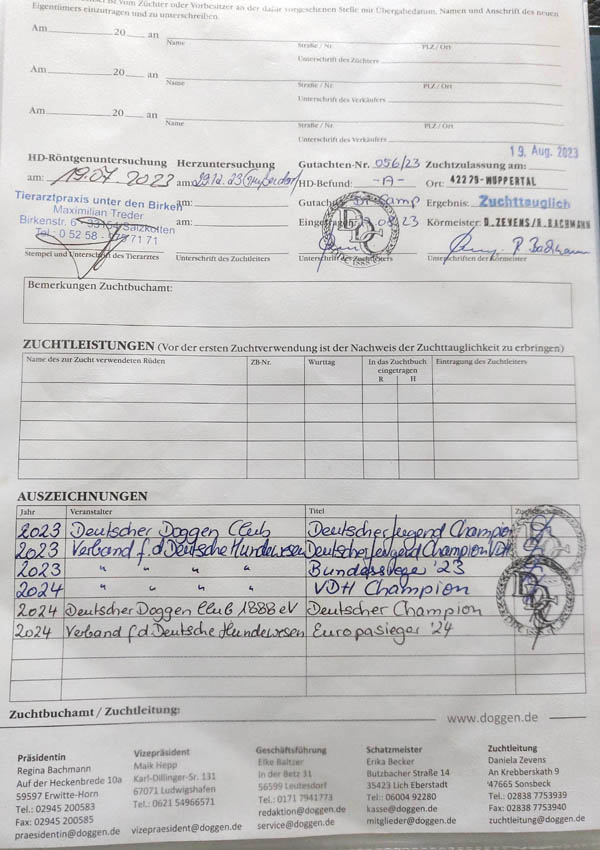 ist vom Züchter oder Vorbesitzer an der dafür vorgesehenen Stelle mit Übergabedatum, Namen und Anschrift des neuen
Eigentümers einzutragen und zu unterschreiben.
Am 20 an
Name Straße / Nr. PLZ / Ort
Unterschrift des Züchters
Am 20 an
Name Straße / Nr. PLZ / Ort
Unterschrift des Verkäufers
Am 20 an
Name Straße / Nr. PLZ / Ort
Unterschrift des Verkäufers
19. Aug. 2023
HD-Röntgenuntersuchung Herzuntersuchung Gutachten-Nr. 056/23 Zuchtzulassung am:
am: 19.07.2023 am: HD-Befund: -A- Ort: 42279-WUPPERTAL
Tierarztpraxis unter den Birken am: Gutachter Ergebnis: Zuchttauglich
Maximilian Treder
Birkenstr. Salzkotten am: Eingetragen Körmeister: D.ZEVENS/R.BACHMANN
Tel.: 0 52 58
Stempel und Unterschrift des Tierarztes Unterschrift des Zuchtleiters Unterschrift des Zuchtleiters Unterschriften der Körmeister
Bemerkungen Zuchtbuchamt:
ZUCHTLEISTUNGEN (Vor der ersten Zuchtverwendung ist der Nachweis der Zuchttauglichkeit zu erbringen)
Name des zur Zucht verwendeten Rüden ZB-Nr. Wurftag In das Zuchtbuch eingetragen Eintragung des Zuchtleiters
R H
AUSZEICHNUNGEN
Jahr Veranstalter Titel
2023 Deutscher Doggen Club Deutscher Jugend Champion
2023 Verband f. d. Deutsche Hundewesen Deutscher Jugend Champion VDH
2023 " " " " Bundessieger '23
2024 " " " " VDH Champion
2024 Deutscher Doggen Club 1888 eV Deutscher Champion
2024 Verband f d Deutsche Hundewesen Europasieger '24
Zuchtbuchamt / Zuchtleitung:
www.doggen.de
Präsidentin Vizepräsident Geschäftsführung Schatzmeister Zuchtleitung
Regina Bachmann Maik Hepp Elke Baltzer Erika Becker Daniela Zevens
Auf der Heckenbrede 10a Karl-Dillinger-Sr. 131 In der Betz 31 Butzbacher Straße 14 An Krebberskath 9
59597 Erwitte-Horn 67071 Ludwigshafen 56599 Leutesdorf 35423 Lich Eberstadt 47665 Sonsbeck
Tel.: 02945 200583 Tel.: 0621 54966571 Tel.: 0171 7941773 Tel.: 06004 92280 Tel.: 02838 7753939
Fax: 02945 200585 redaktion@doggen.de kasse@doggen.de Fax: 02838 7753940
praesidentin@doggen.de vizepraesident@doggen.de service@doggen.de mitglieder@doggen.de zuchtleitung@doggen.de